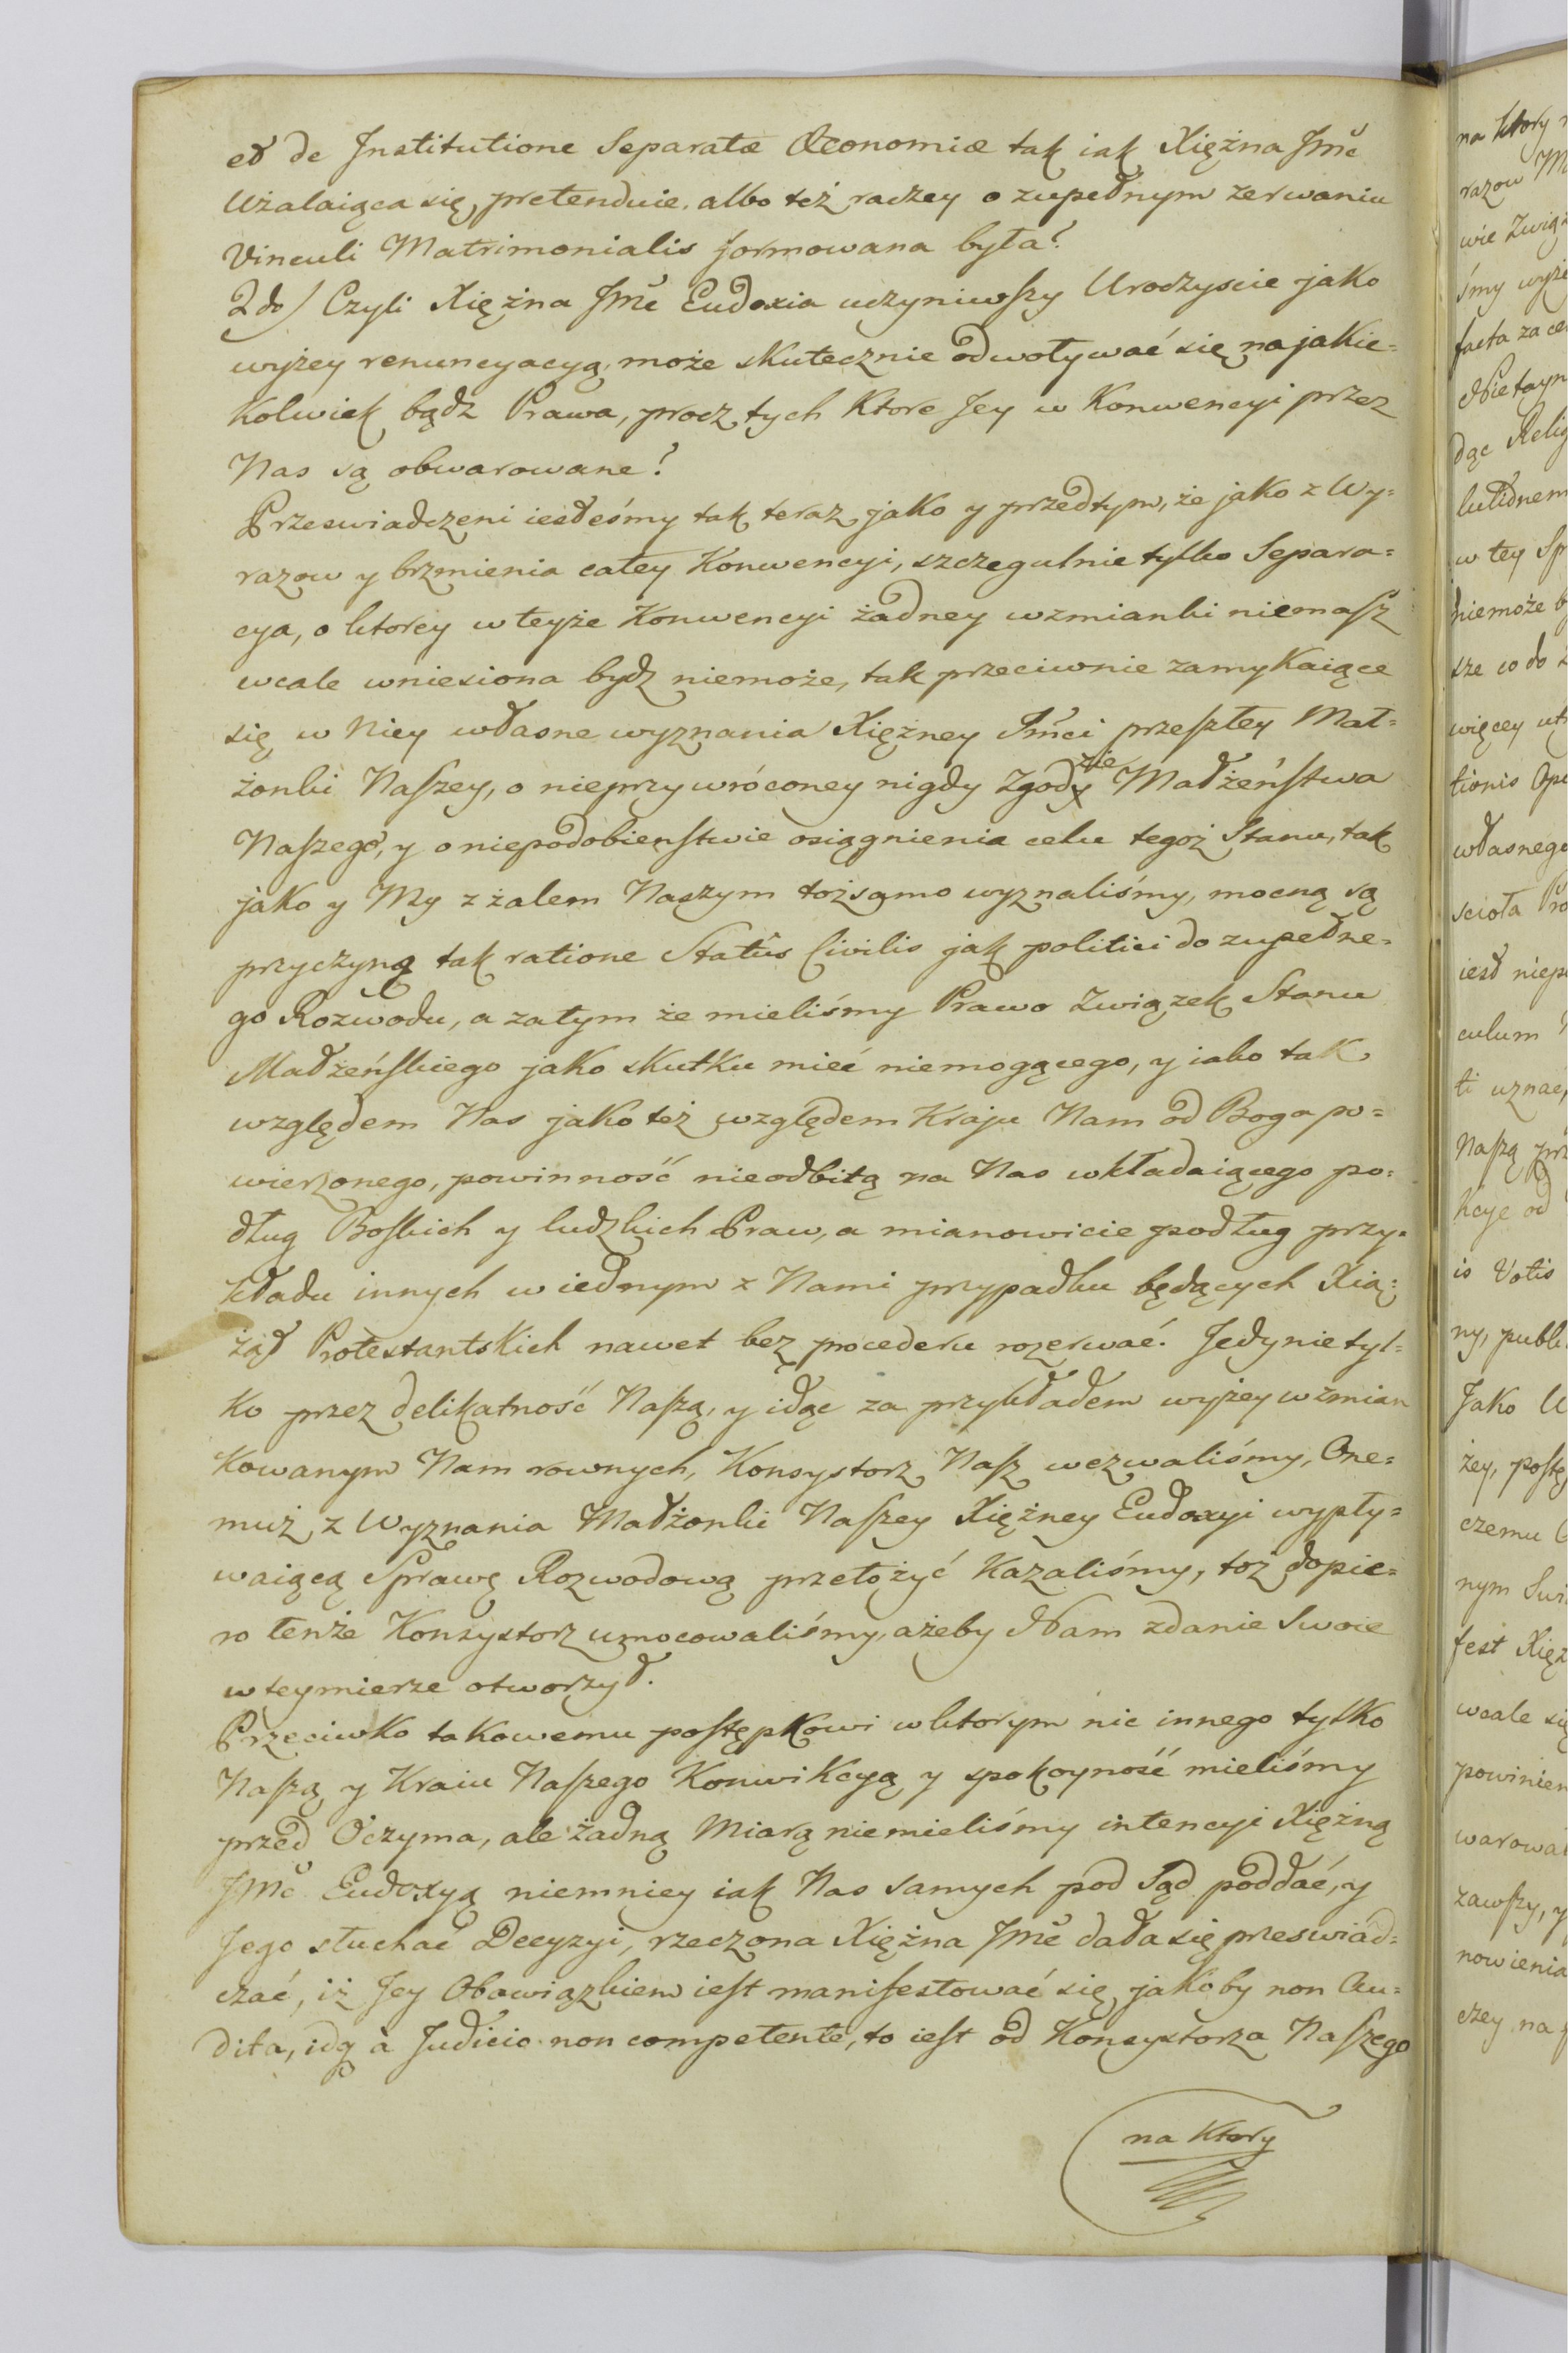 et de Institutione Separatæ Œconomiæ tak iak Xiężna Jmć
Użalaiąca się, pretenduie. albo też raczey o zupełnym zerwaniu
Vinculi Matrimonialis formowana była?
2do) Czyli Xiężna Jmć Eudoxia uczyniwszy Uroczyscie jako
wyżey renuncyacyą, może skutecznie odwoływać się na jakie=
kolwiek bądz Prawa, procz tych ktore Jey w Konwencyi przez
Nas są obwarowane?
Przeswiadczeni iesteśmy tak teraz jako y przedtym, że jako z Wy=
razow y brzmienia całey Konwencyi, szczegulnie tylko Separa=
cya, o ktorey w teyże Konwencyi żadney wzmianki niemasz
wcale wniesiona bydz niemoże, tak przeciwnie zamykaiące
się w Niey własne wyznania Xiężney Jmći przeszłey Mał=
żonki Naszey, o nieprzywróconey nigdy Zgodzie Małżeństwa
Naszego, y o niepodobienstwie osiągnienia celu tegoż Stanu, tak
jako y My z żalem Naszym tożsamo wyznaliśmy, mocną są
przyczyną tak ratione Statûs Civilis jak politici do zupełne=
go Rozwodu, a zatym że mieliśmy Prawo Związek Stanu
Małżeńskiego jako skutku mieć niemogącego, y iako tak
względem Nas jako też względem Kraju Nam od Boga po=
wierzonego, powinność nieodbitą na Nas wkładaiącego po=
dług Boskich y ludzkich Praw, a mianowicie podług przy=
kładu innych w iednym z Nami przypadku będących Xią=
żąt Protestantskich nawet bez procederu rozerwać. Jedynie tyl=
ko przez delikatność Naszą, y idąc za przykładem wyżey wzmian
kowanym Nam rownych, Konsystorz Nasz wezwaliśmy, One=
muż z Wyznania Małżonki Naszey Xiężney Eudoxyi wypły=
waiącą Sprawę Rozwodową przełożyć kazaliśmy, toż dopie=
ro tenże Konsystorz umocowaliśmy, ażeby Nam zdanie Swoie
w teymierze otworzył.
Przeciwko takowemu postępkowi w ktorym nic innego tylko
Naszą y Kraiu Naszego Konwikcyą y spokoyność mieliśmy
przed Oczyma, ale żadną Miarą niemieliśmy intencyi Xiężną
Jmć Eudoxyą niemniey iak Nas samych pod Sąd poddać, y
Jego słuchać Decyzyi, rzeczona Xiężna Jmć dała się przeswiad=
czać, iż Jey Obowiązkiem iest manifestować się jakoby non Au=
dita, idq à Judicio non competente, to iest od Konsystorza Naszego
na ktory
na ktory
razow
wie
śmy
facta
dąc
w tey
niemoże
sze co do
więcey
tionis
własnego
scioła
iest
culum
ti uznać,
Naszą
kcye od
is Votis
ny,
Jako
żey,
czemu
nym
fest
wcale się
powinien
zawszy, y
nowienia
czey na